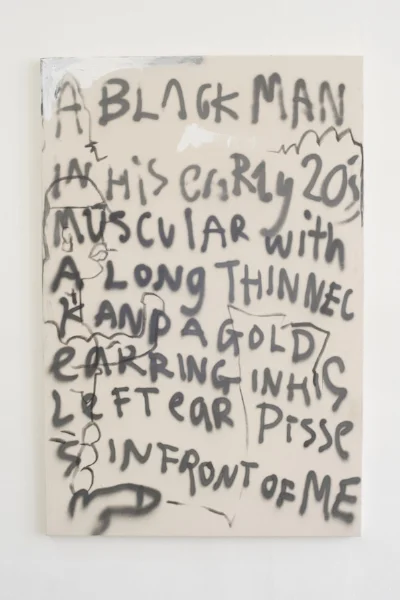 A BLACK MAN
IN HiS EARLy 20'S
MUSCULAR with
A LONG THIN NEC
K AND A GOLD
eARRING IN HIS
LeFT eAR PiSSe
S IN FRONT OF ME